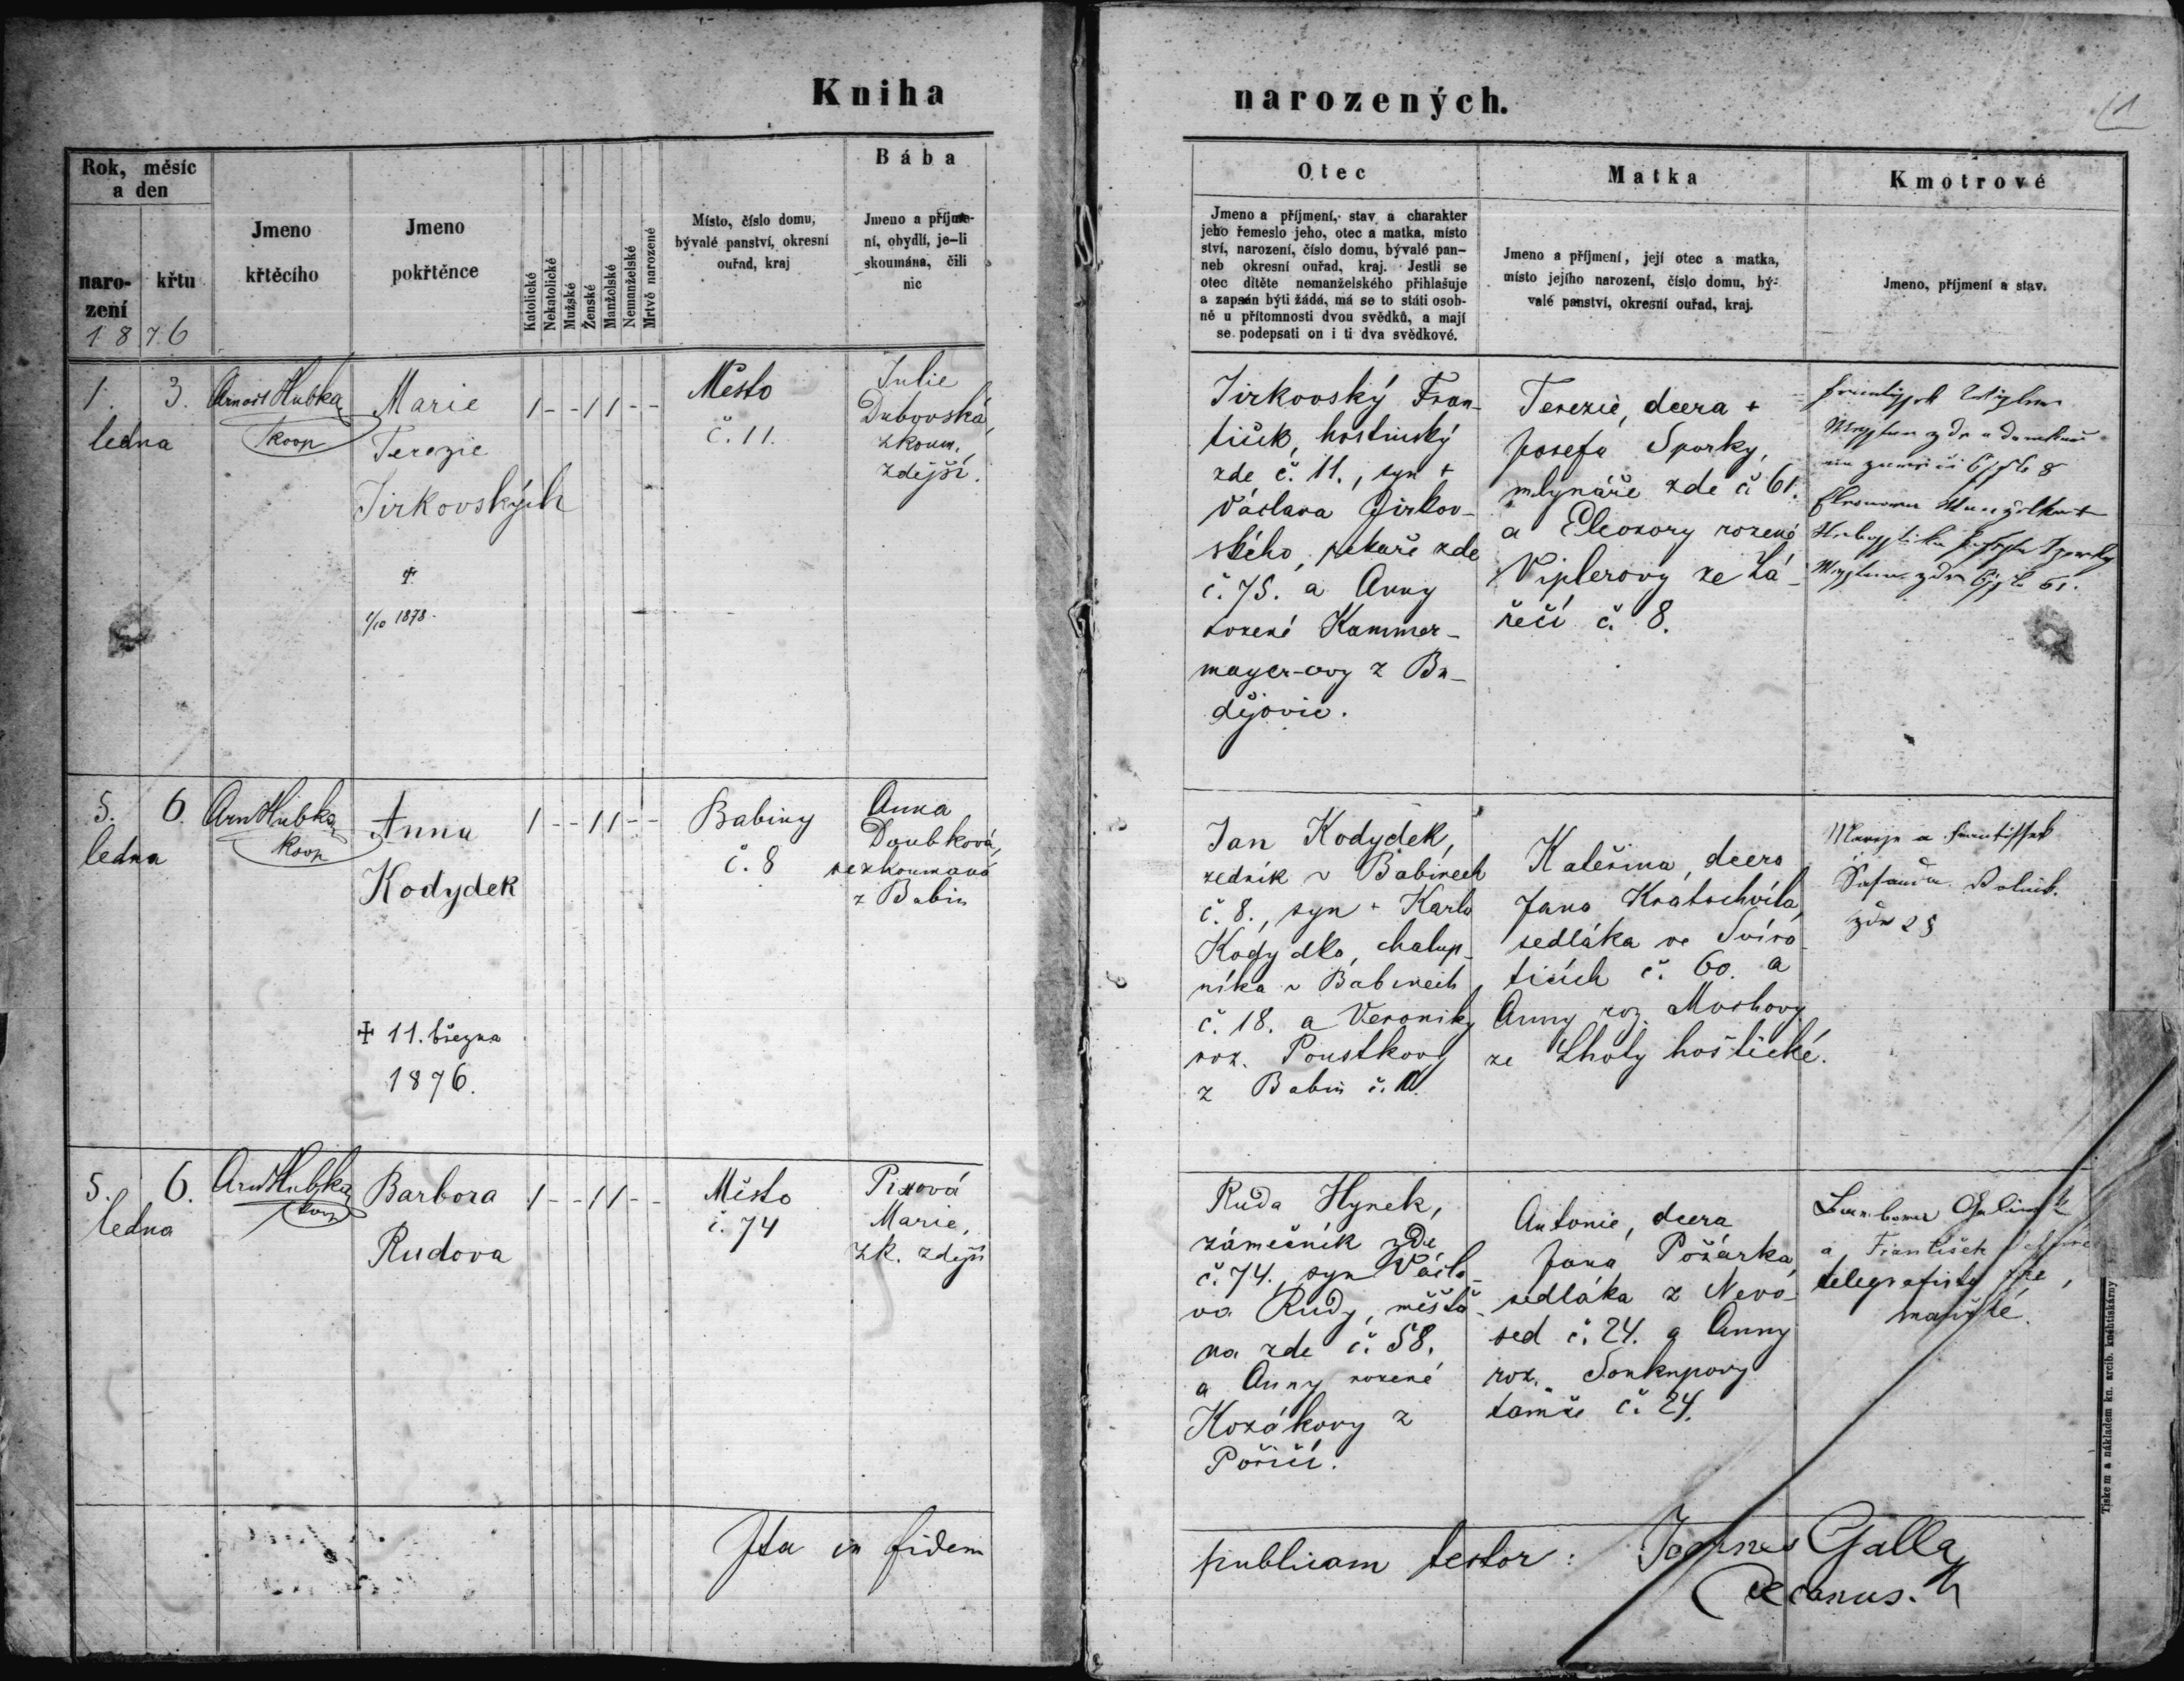 Kniha
narozených.
1
Rok, měsíc
a den
naro-
zení
křtu
1876
Jmeno
křtěcího
Jmeno
pokřtěnce
Katolické
Nekatolické
Mužské
Ženské
Manželské
Nemanželské
Mrtvě narozené
Místo, číslo domu,
bývalé panství, okresní
ouřad, kraj
Bába
Jmeno a příjme-
ní, obydlí, je-li
skoumána, čili
nic
Otec
Jmeno a příjmení, stav a charakter
jeho řemeslo jeho, otec a matka, místo
ství, narození, číslo domu, bývalé pan-
neb okresní ouřad, kraj. Jestli se
otec dítěte nemanželského přihlašuje
a zapsán býti žádá, má se to státi osob-
ně u přítomnosti dvou svědků, a mají
se podepsati on i ti dva svědkové.
Matka
Jmeno a příjmení, její otec a matka,
místo jejího narození, číslo domu, bý-
valé panství, okresní ouřad, kraj.
Kmotrové
Jmeno, příjmení a stav.
1. 3.
ledna
Arnošt Hubka
koop
Marie
Terezie
Jirkovských
+
1/10 1878.
1 - - 1 1 - -
Město
č. 11.
Julie
Dubovská,
zkoum.
zdejší.
Jirkovský Fran-
tišek, hostinský
zde č. 11., syn +
Václava Jirkov-
ského, pekaře zde
č. 75. a Anny
rozené Kammer-
mayer-ovy z Bu-
dějovic.
Terezie, dcera +
Josefa Sporky,
mlynáře zde č 61.
a Eleonory rozené
Viplerovy ze Zá-
řečí č. 8.
5. 6.
ledna
Arn Hubka
koop
Anna
Kodydek
+ 11. března
1876.
1 - - 1 1 - -
Babiny
č. 8
Anna
Doubková,
nezkoumaná
z Babin
Jan Kodydek,
zedník v Babinech
č. 8., syn + Karla
Kodydka, chalup-
níka v Babinech
č. 18. a Veroniky
roz. Poustkovy
z Babin č.
Kateřina, dcera
Jana Kratochvíla,
sedláka ve Svíro-
ticích č. 60. a
Anny roz. Mochovy
ze Lhoty hoštické.
5. 6.
ledna
Arn Hubka
koop
Barbora
Rudova
1 - - 1 1 - -
Město
č. 74
Pixová
Marie,
zk. zdejší
Ruda Hynek,
zámečník zde
č. 74., syn Václa-
va Rudy, měšťa-
na zde č. 58.
a Anny rozené
Kozákovy z
Poříčí.
Antonie, dcera
Jana Požárka,
sedláka z Nevo-
sed č. 24. a Anny
roz. Soukupovy
tamže č. 24.
a František
telegrafista zde,
manželé.
Ita in fidem
publicam testor: Joannes Galla
decanus.
Tiskem a nákladem kn. arcib. knihtiskárny